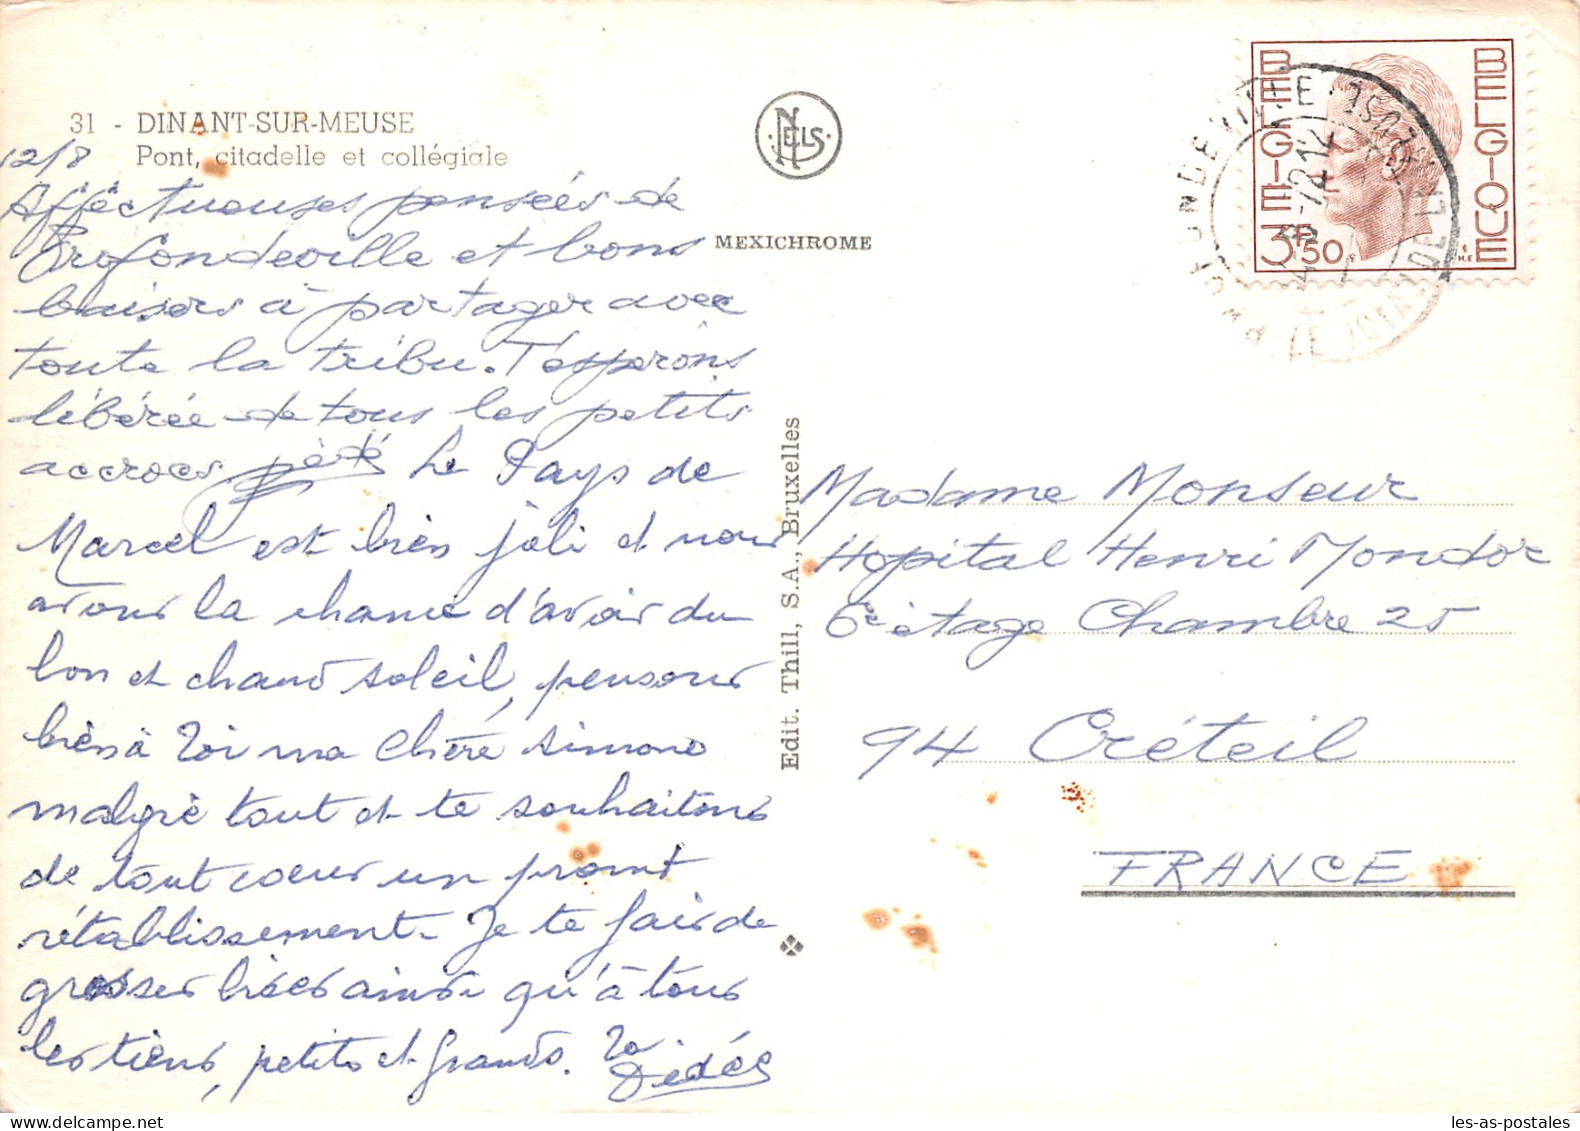 31 - DINANT-SUR-MEUSE
Pont, citadelle et collégiale
12/8
Afféctueuses pensées de
Profondeville et bons
baisers à partager avec
toute la tribu. T'espérons
libérée de tous les petits
accrocs pédé Le Pays de
Marcel est bien joli et nous
avons la chance d'avoir du
bon et chaud soleil, pensons
bien à Toi ma Chère Simone
malgré tout et te souhaitons
de tout coeur un promt
rétablissement. Je te fais de
grosses bises ainsi qu'à tous
les tiens, petits et grands. Ta
Dédée
NELS
MEXICHROME
Edit. Thill, S.A., Bruxelles
BELGIE
BELGIQUE
3F50
PROFONDEVILLE
Madame Monseur
Hopital Henri Mondor
6e étage Chambre 25
94 Créteil
FRANCE
les-as-postales